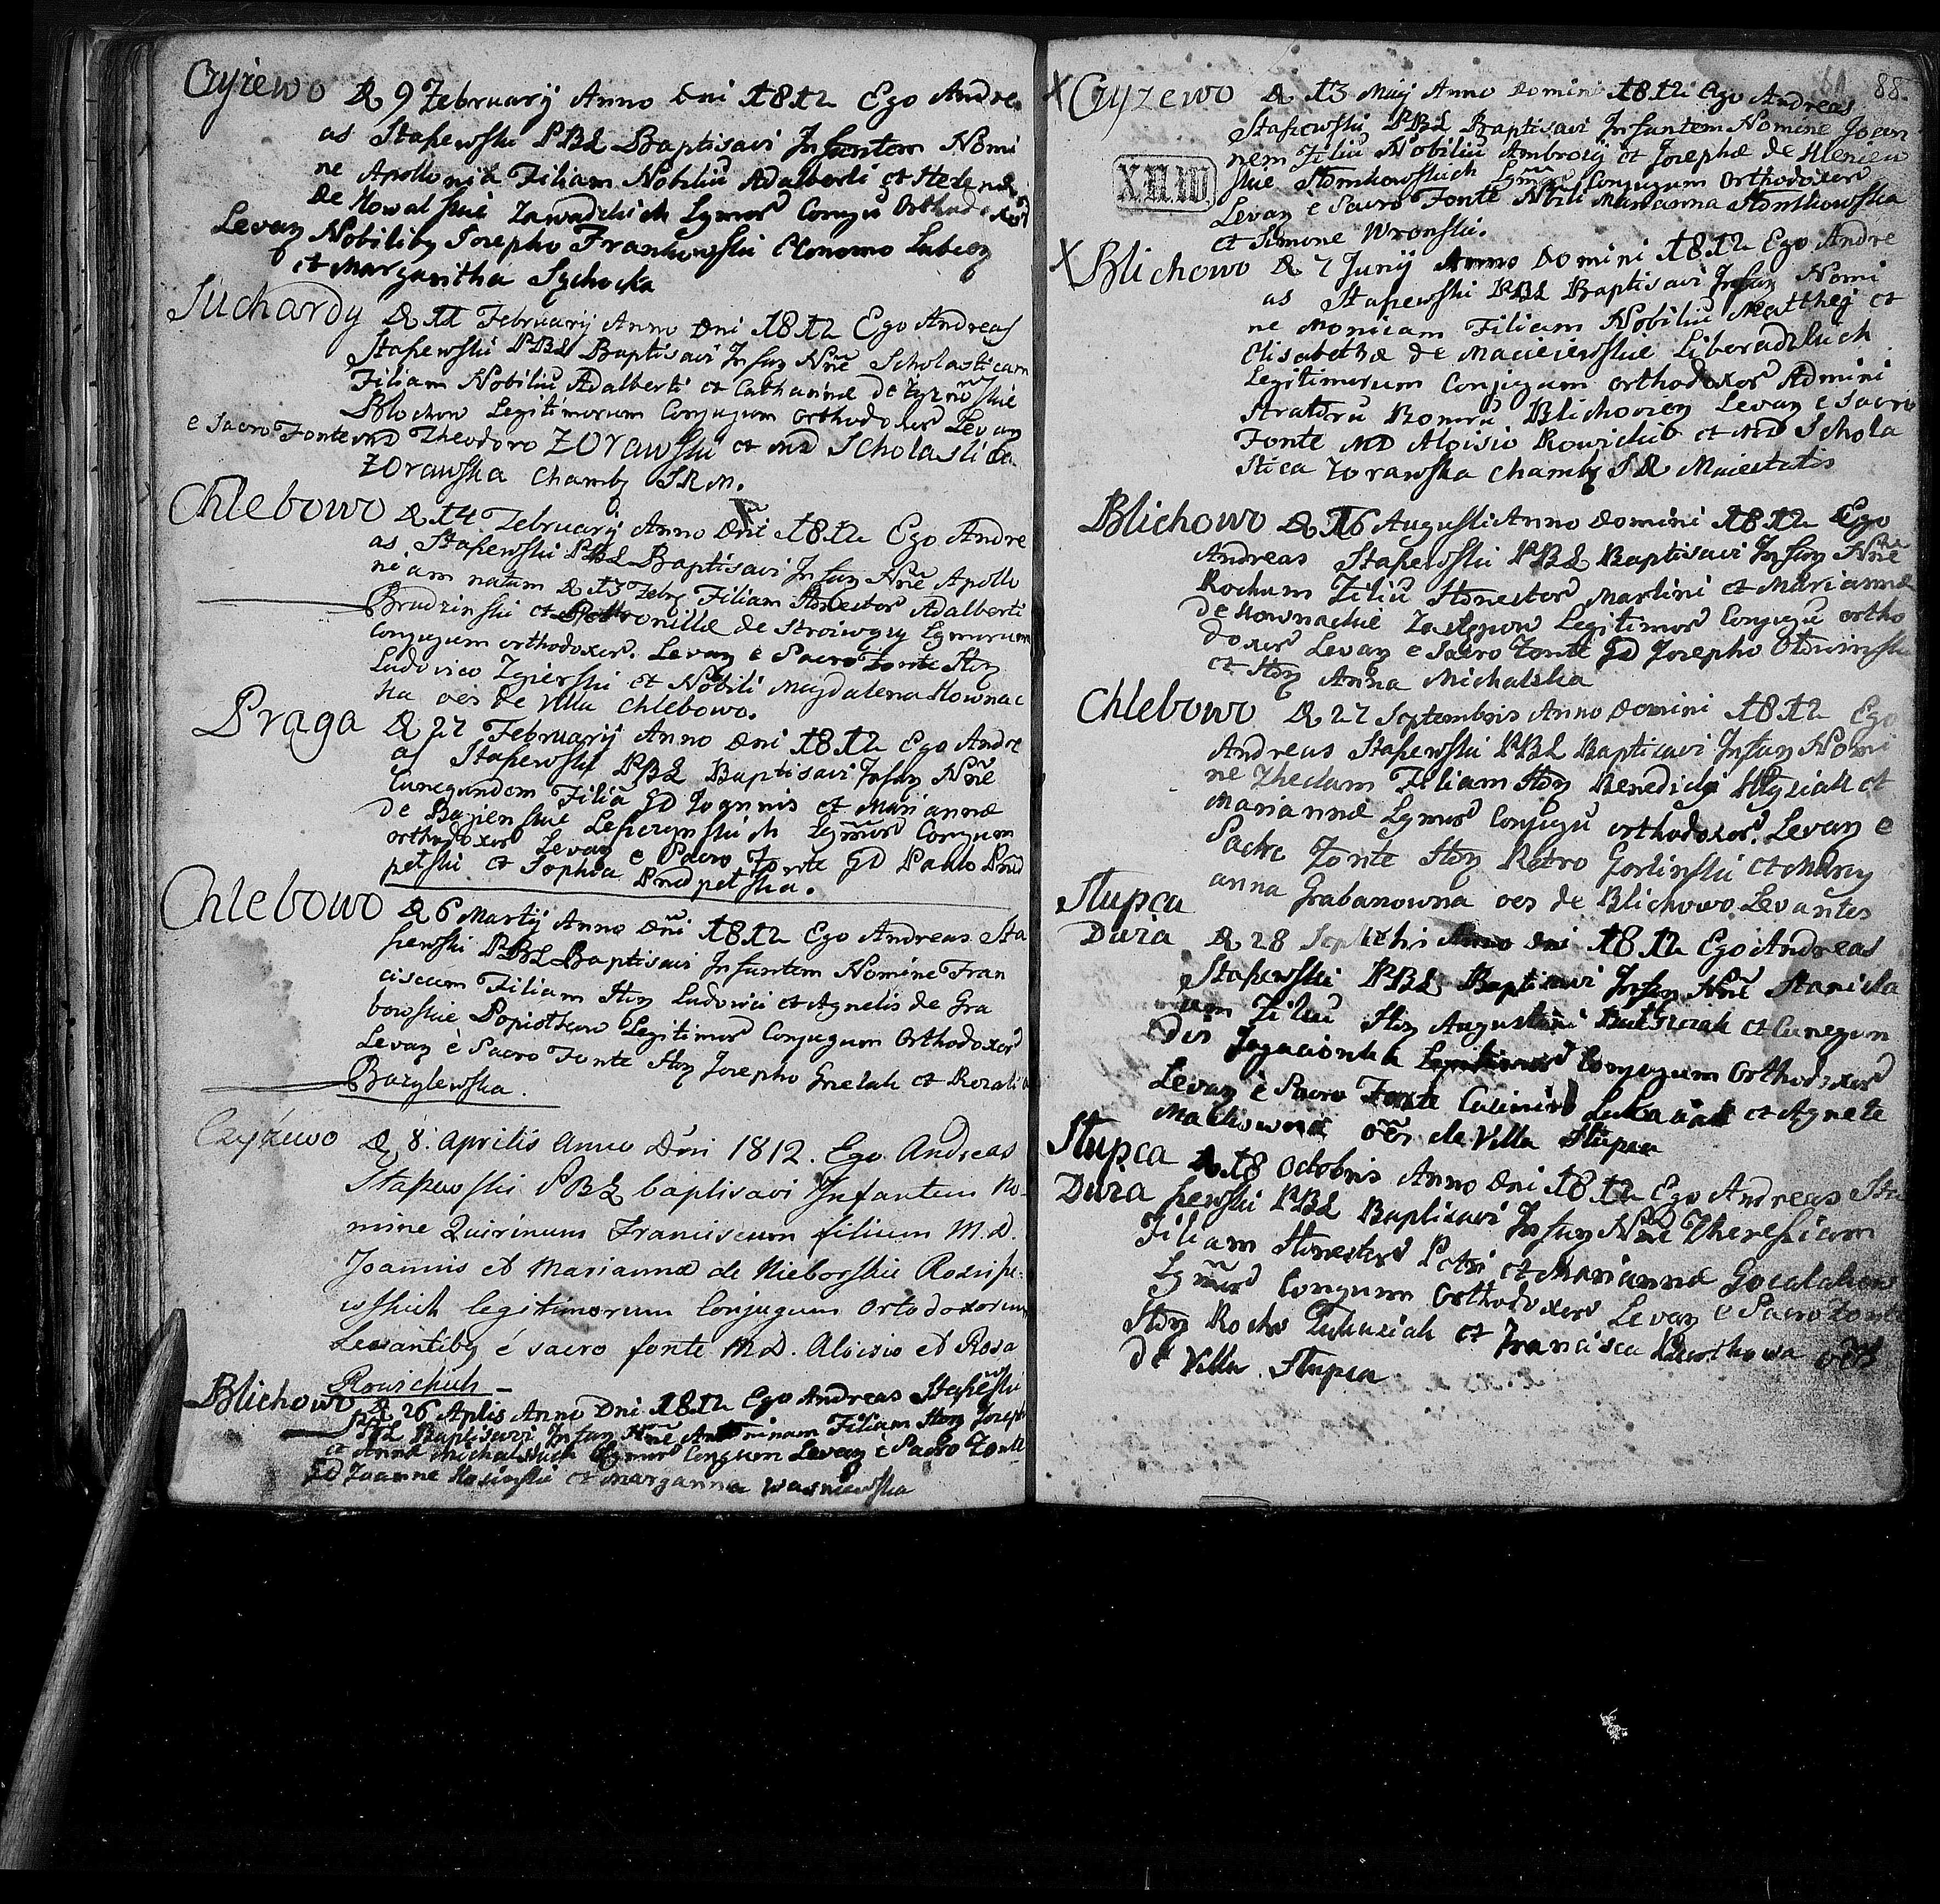 Czyżewo D 9 Februarij Anno Dni 1812 Ego Andre
as Staszewski PBL Baptisavi Infantem Nomi
ne Apollonia Filiam Nobiliu Adalberti et Helenæ
de Kowalskie Zawadzkich Lgmor Conjgu Orthodoxor
Levan Nobilibg Josepho Frankowski Œconomo
et Margaritha Sychocka
Suchardy D 11 Februarij Anno Dni 1812 Ego Andreas
Staszewski PBL Baptisavi Infan Nne Scholasticam
Filiam Nobiliu Adalberti et Catharinæ de
Blochow Legitimorum Conjugum Orthodoxor Levan
e Sacro Fonte MD Theodoro Zorawski et MD Scholastica
Zorawska Chambg S R M.
Chlebowo D 14 Februarij Anno Dñi 1812 Ego Andre
as Staszewski PBL Baptisavi Infan Nne Apollo
niam natam D 13 Febr Filiam Honestor Adalberti
Brudzinski et Petronillæ de Lgmorum
Conjugum orthodoxor. Levan e Sacro Fonte Hon
Ludovico Zgierski et Nobili Magdalena Kownac
ka oes de Villa Chlebowo.
Praga D 27 Februarij Anno Dni 1812 Ego Andre
as Staszewski PBL Baptisavi Infan Nñe
Cunegundem Filiã GD Joannis et Mariannæ
de Leszczynskich Lgmor Conjgum
orthodoxor Levan e Sacro Fonte GD Paulo
et Sophia
Chlebowo D 6 Martij Anno Dñi 1812 Ego Andreas Sta
szewski PBL Baptisavi Infantem Nomine Fran
ciscum Filium Hon Ludovici et Agnetis de Gra
bowskie Popiołkow Legitimor Conjugum Orthodoxor
Levan è Sacro Fonte Hon Josepho Gnelak et Rozalia
Bazylewska.
Czyżewo D 8 Aprilis Anno Dñi 1812. Ego Andreas
Staszewski PBL baptisavi Infantem No-
mine Quirinum Franciscum filium M.D.
Joannis et Mariannæ de Nieborskie
legitimorum Conjugum Ortodoxorum
Levantibg é sacro fonte M.D. Aloisio et Rosa
Rowickich
Blichowo D 26 Aplis Anno Dni 1812 Ego Andreas Staszewski
PBL Baptisavi Infan Nñe Antoninam Filiam Hon Joseph
et Annæ Michalskich Lgmor Conjgum Levan è Sacro Fonte
GD Joanne Kosinski et Marganna Wasniewska
88.
X Czyzewo D 13 Maij Anno Domini 1812 Ego Andreas
Staszewski PBL Baptisavi Infantem Nomine Joan
nem Filiu Nobiliu Ambrosij et Josephæ de
skie Słomkowskich Lgmor Conjugum Orthodoxor
XII.10
Levan e Sacro Fonte Nbili Marianna Słomkowska
et Simone Wronski.
X Blichowo D 7 Junij Anno Domini 1812 Ego Andre
as Staszewski PBL Baptisavi Infan Nomi
ne Monicam Filiam Nobiliu Matthej et
Elisabethæ de Macieiewskie Liberadzkich
Legitimorum Conjugum Orthodoxor Admini
stratoru Bonoru Blichovien Levan e Sacro
Fonte MD Aloisio Rowickio et MD Schola
stica Zorawska Chambg S R Maiestatis
Blichowo D 16 Augusti Anno Domini 1812 Ego
Andreas Staszewski PBL Baptisavi Infan Nñe
Rochum Filiu Honestor Martini et Mariannæ
de Kownackie Zastępow Legitimor Conjugu ortho
doxor Levan e Sacro Fonte GD Josepho
et Hon Anna Michalska
Chlebowo D 27 Septembris Anno Domini 1812 Ego
Andreas Staszewski PBL Baptisavi Infan Nomi
ne Theclam Filiam Hon Benedicti et
Mariannæ Lgmor Conjugu orthodoxor. Levan e
Sacro Fonte Hon Petro Gorlinski et Mary
anna Grabanowna oes de Blichowo Levantes
Słupca
Duża D 28 Septebris Anno Dni 1812 Ego Andreas
Staszewski PBL Baptisavi Infan Nñe Stanisla
um Filiu Hon Augustini et Cunegun
dis Legitimor Conjugum Orthodoxor
Levan è Sacro Fonte Casimiro et Agnete
oẽs de Villa Słupca
Słupca D 18 Octobris Anno Dni 1812 Ego Andreas Sta
Duża szewski PBL Baptisavi Infan Nñe Theresiam
Filiam Honestor Petri et Mariannæ
Lgmor Conjgum Orthodoxor Levan e Sacro Fonte
Hon Rocho et Francisca oẽs
de Villa Słupca